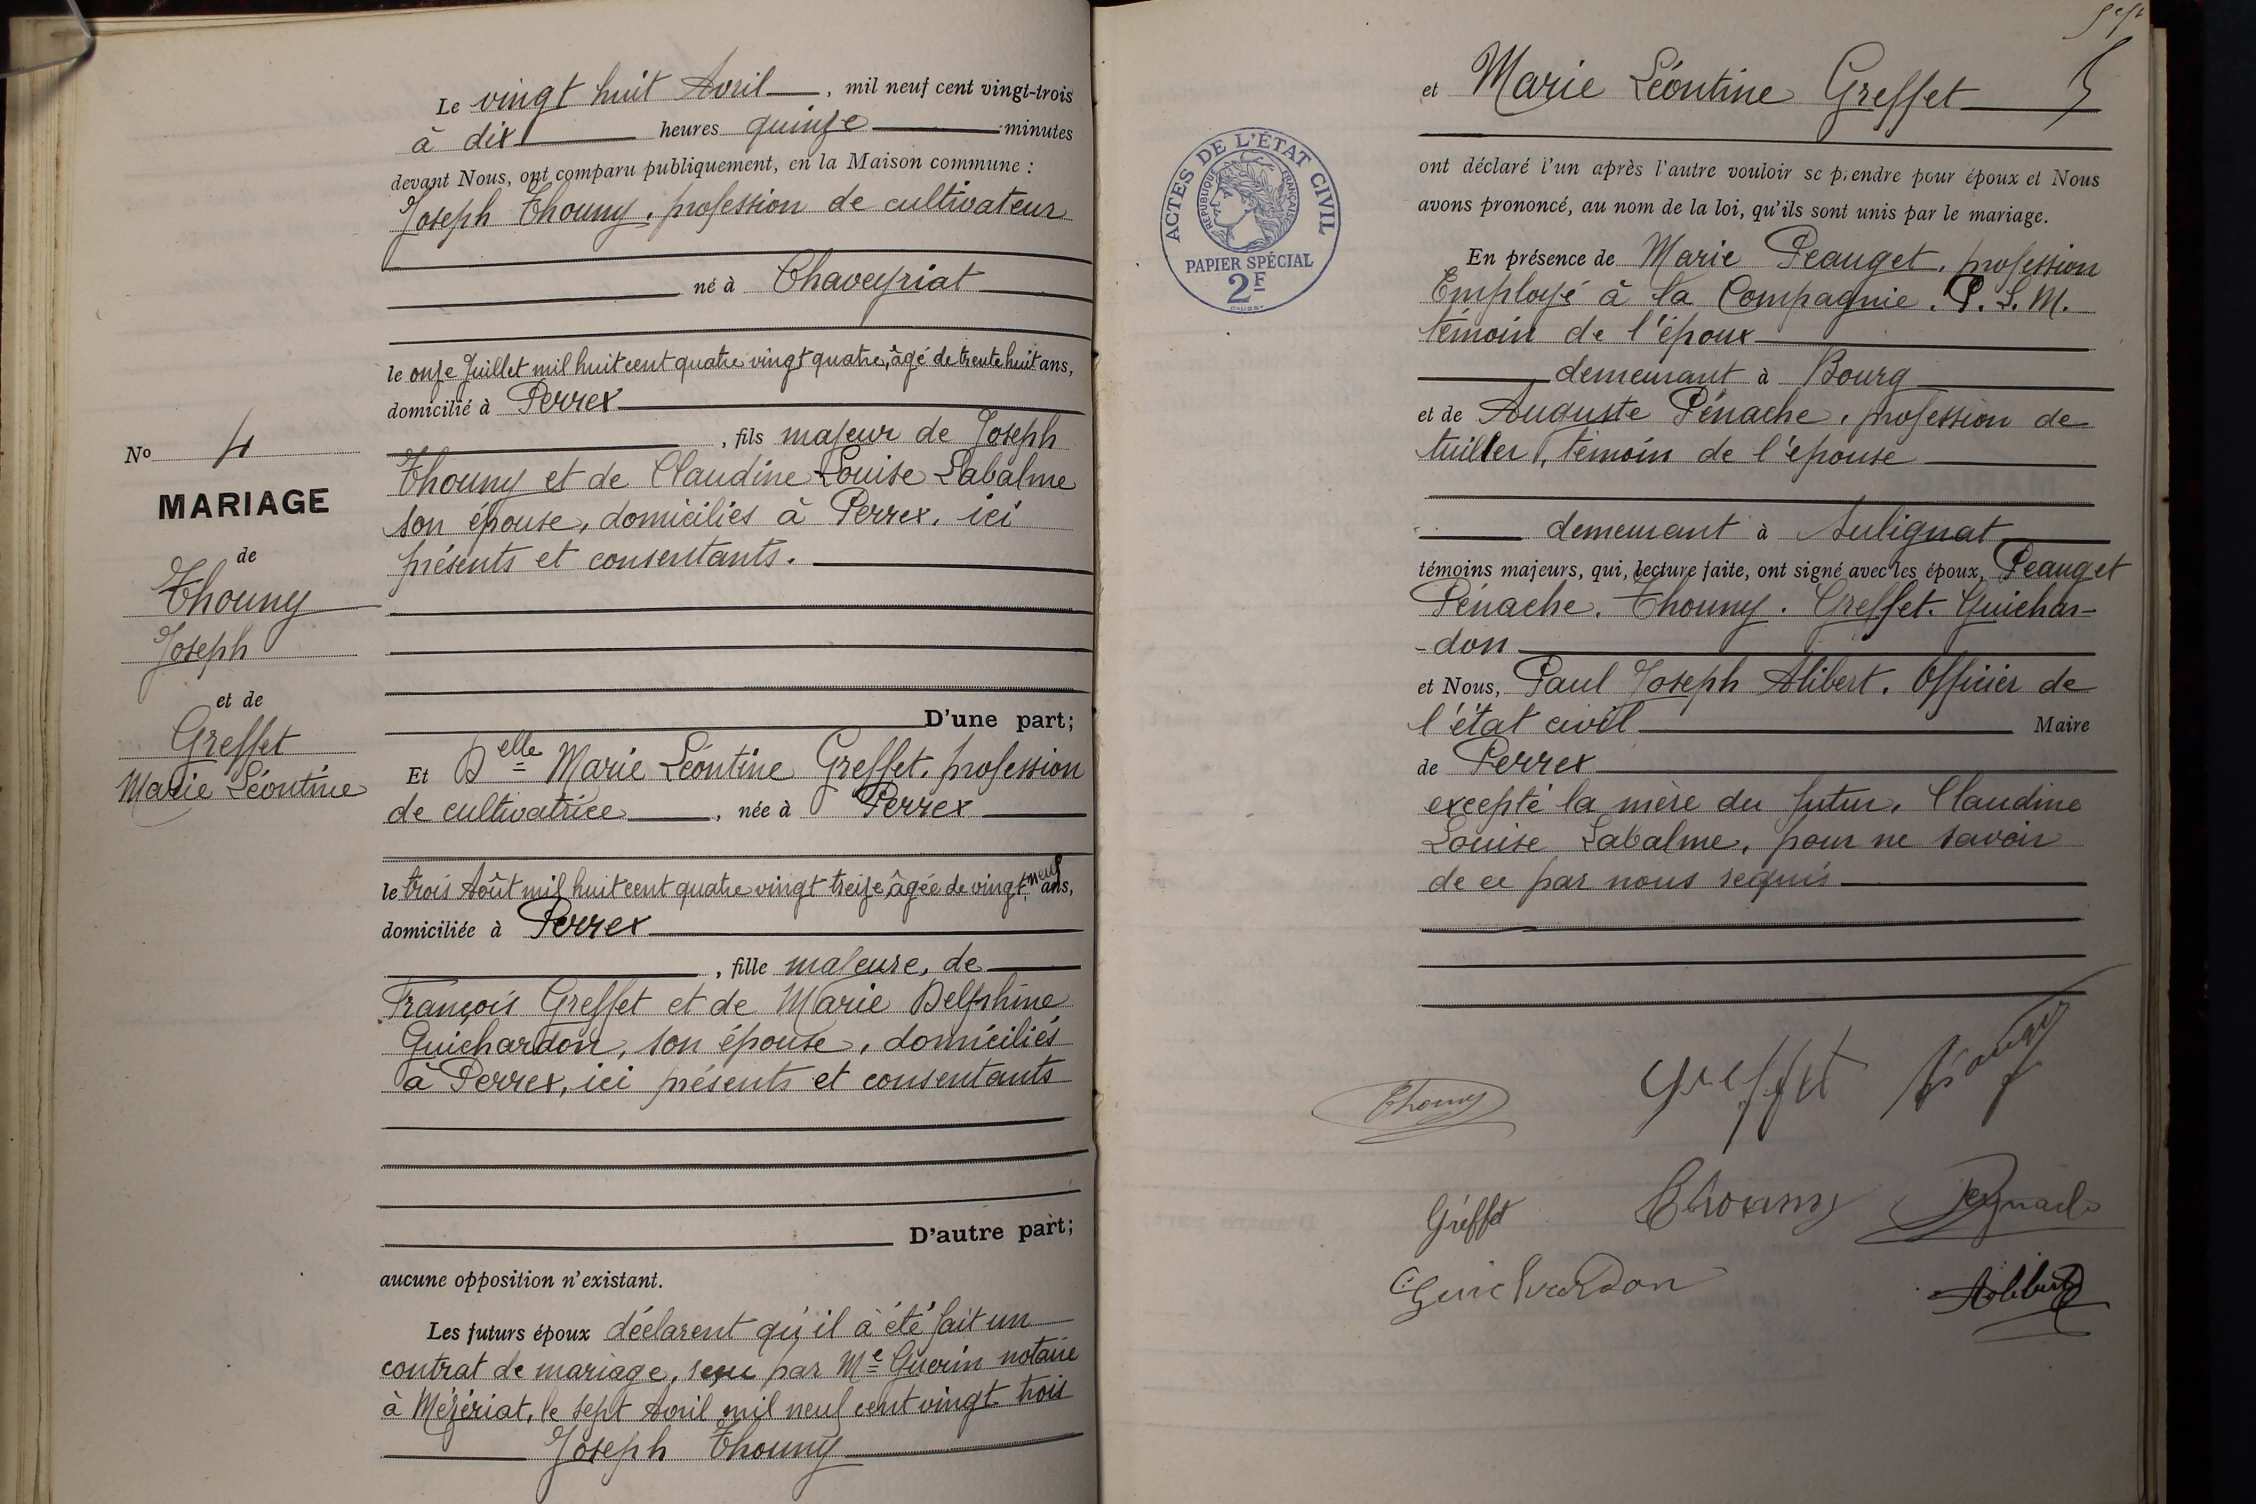 Le vingt huit Avril, mil neuf cent vingt-trois
à dix heures quinze minutes
devant Nous, ont comparu publiquement, en la Maison commune :
Joseph Thouny, profession de cultivateur
né à Chaveyriat
le onze Juillet mil huit cent quatre vingt quatre, âgé de trente huit ans,
domicilié à Perrex
, fils majeur de Joseph
Thouny et de Claudine Louise Labalme
son épouse, domiciliés à Perrex, ici
présents et consentants.
No 4
MARIAGE
de
Thouny
Joseph
et de
Greffet
Marie Léontine
D'une part;
Et Delle Marie Léontine Greffet, profession
de cultivatrice, née à Perrex
le trois Août mil huit cent quatre vingt treize, âgée de vingt neuf ans,
domiciliée à Perrex
, fille majeure, de
François Greffet et de Marie Delphine
Guichardon, son épouse, domiciliés
à Perrex, ici présents et consentants
D'autre part;
aucune opposition n'existant.
Les futurs époux déclarent qu'il à été fait un
contrat de mariage, reçu par Me Guerin notaire
à Mézériat, le sept Avril mil neuf cent vingt-trois
Joseph Thouny
et Marie Léontine Greffet
ont déclaré l'un après l'autre vouloir se prendre pour époux et Nous
avons prononcé, au nom de la loi, qu'ils sont unis par le mariage.
ACTES DE L'ÉTAT CIVIL
RÉPUBLIQUE FRANÇAISE
PAPIER SPÉCIAL
2F
En présence de Marie Peauget, profession
Employé à la Compagnie. P. L. M.
témoin de l'époux
demeurant à Bourg
et de Auguste Pénache, profession de
tuilier, témoin de l'épouse
demeurant à Sulignat
témoins majeurs, qui, lecture faite, ont signé avec les époux, Peauget
Pénache. Thouny. Greffet. Guichar-
-don
et Nous, Paul Joseph Alibert, Officier de
l'état civil Maire
de Perrex
excepté la mère du futur, Claudine
Louise Labalme, pour ne savoir
de ce par nous requis
Thouny
Greffet
Greffet
Thouny
Guichardon
Alibert